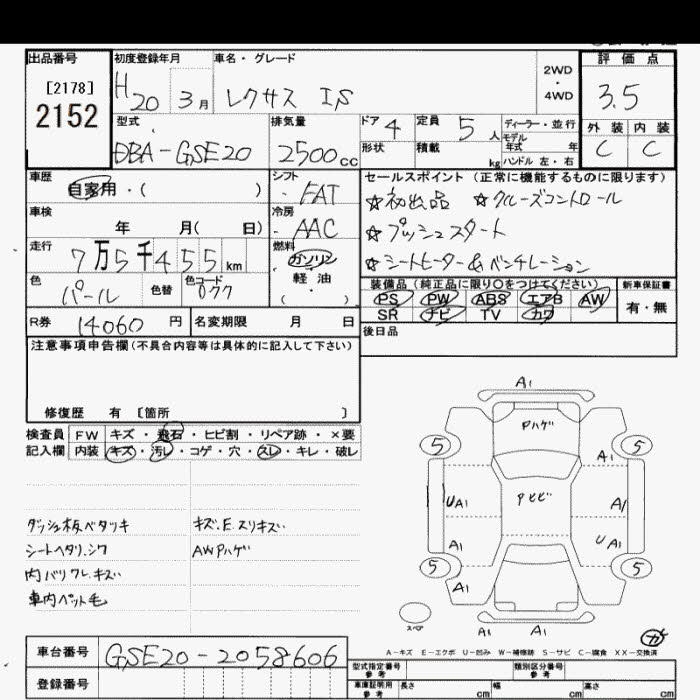 出品番号 初度登録年月 車名・グレード 評価点
[2178] H20 3月 レクサス IS 2WD・4WD 3.5
2152
型式 排気量 ドア 4 定員 5人 ディーラー・並行 外装 内装
モデル
DBA-GSE20 2500cc 形状 積載 kg 年式 年 ハンドル 左・右 C C
車歴 シフト セールスポイント (正常に機能するものに限ります)
自家用・( ) FAT ☆初出品 ☆クルーズコントロール
車検 冷房
年 月( 日) AAC ☆プッシュスタート
走行 燃料
7万5千455km ガソリン ☆シートヒーター&ベンチレーション
軽油
色 色替 色コード ・( ) 装備品 (純正品に限り○をつけてください) 新車保証書
パール 077 PS PW ABS エアB AW 有・無
R券 14060円 名変期限 月 日 SR ナビ TV カワ
後日品
注意事項申告欄(不具合内容等は具体的に記入して下さい)
修復歴 有 [箇所 ]
検査員 FW キズ・飛石・ヒビ割・リペア跡・×要
記入欄 内装 キズ・汚レ・コゲ・穴・スレ・キレ・破レ
ダッシュ板ベタツキ キズ.E.スリキズ
シートヘタリ.シワ AWPハゲ
内バリワレ.キズ
車内ペット毛
A1
Pハゲ
5 5
A1
UA1 Pヒビ A1
A1 UA1
5 5
A1
スペア A1 A1
A-キズ E-エクボ U-凹み W-補修跡 S-サビ C-腐食 XX-交換済
車台番号 GSE20-2058606
型式指定番号 参考 類別区分番号 参考
登録番号
車庫証明用 参考 長さ cm 幅 cm 高さ cm